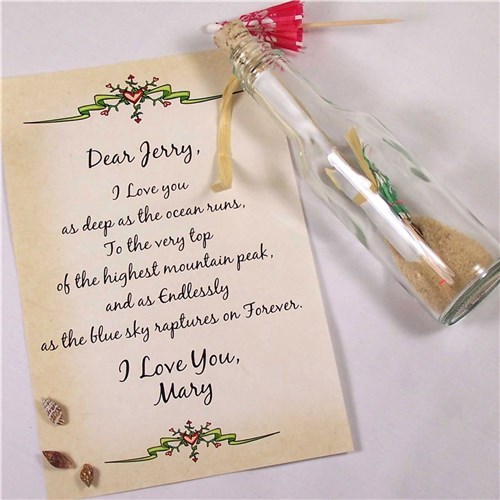 Dear Jerry,
I Love you
as deep as the ocean runs,
To the very top
of the highest mountain peak,
and as Endlessly
as the blue sky raptures on Forever.
I Love You,
Mary